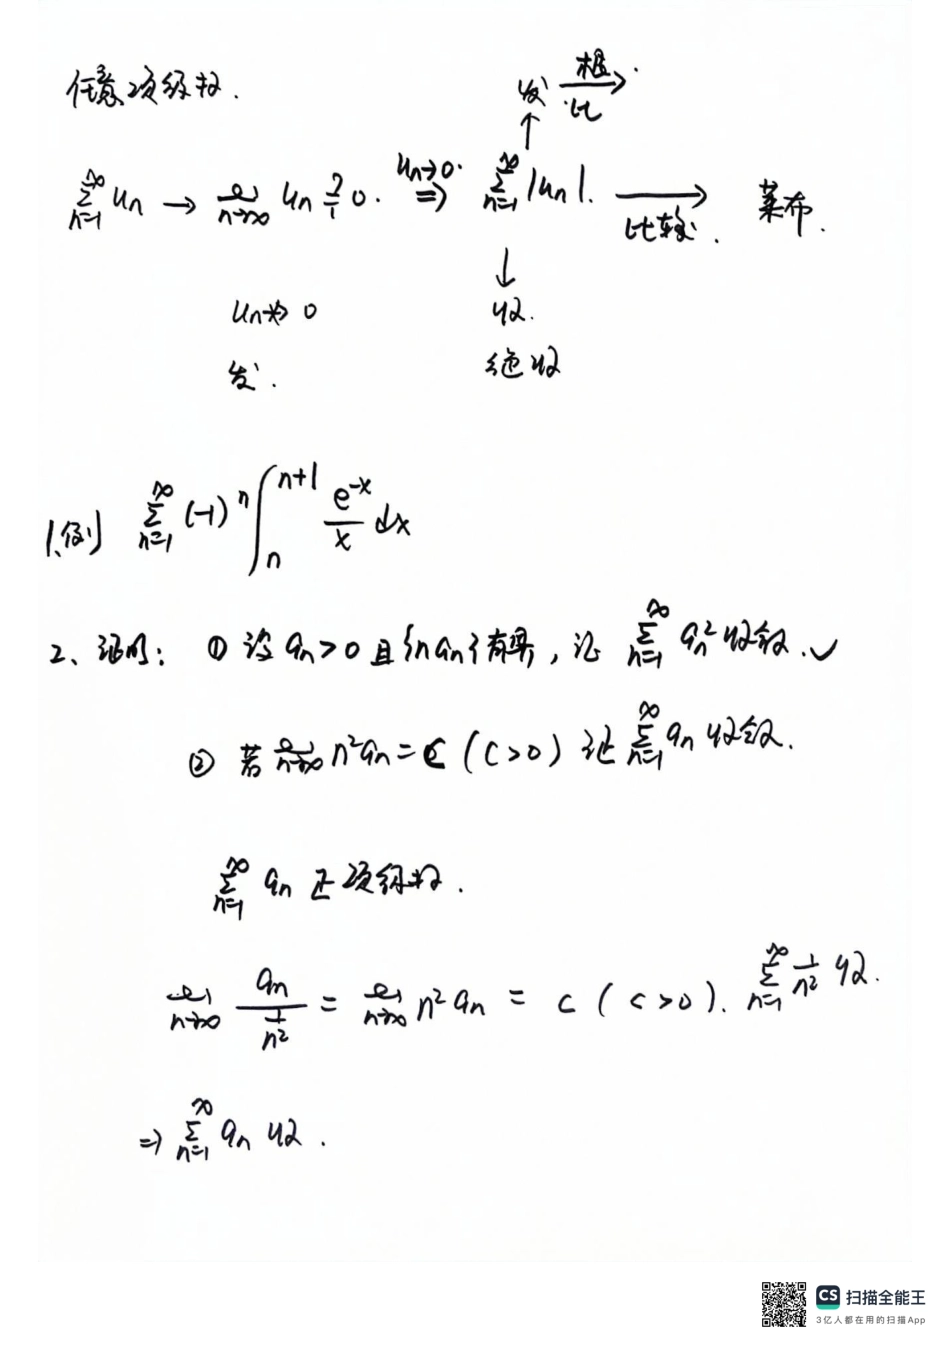 任意项级数.
发 根 比
∑_{n=1}^{∞} u_n → lim_{n→∞} u_n ≟ 0. u_n→0. ⇒ ∑_{n=1}^{∞} |u_n|. → 比较. 莱布.
u_n↛0 收.
发. 绝收
1.例 ∑_{n=1}^{∞} (-1)^n ∫_n^{n+1} e^{-x}/x dx
2、证明: ① 设 a_n>0 且{n a_n}有界, 证 ∑_{n=1}^{∞} a_n^2 收敛. ✓
② 若 lim_{n→∞} n^2 a_n = C (C>0) 证 ∑_{n=1}^{∞} a_n 收敛.
∑_{n=1}^{∞} a_n 正项级数.
lim_{n→∞} a_n/(1/n^2) = lim_{n→∞} n^2 a_n = c (c>0). ∑_{n=1}^{∞} 1/n^2 收.
⇒ ∑_{n=1}^{∞} a_n 收.
CS 扫描全能王
3亿人都在用的扫描App